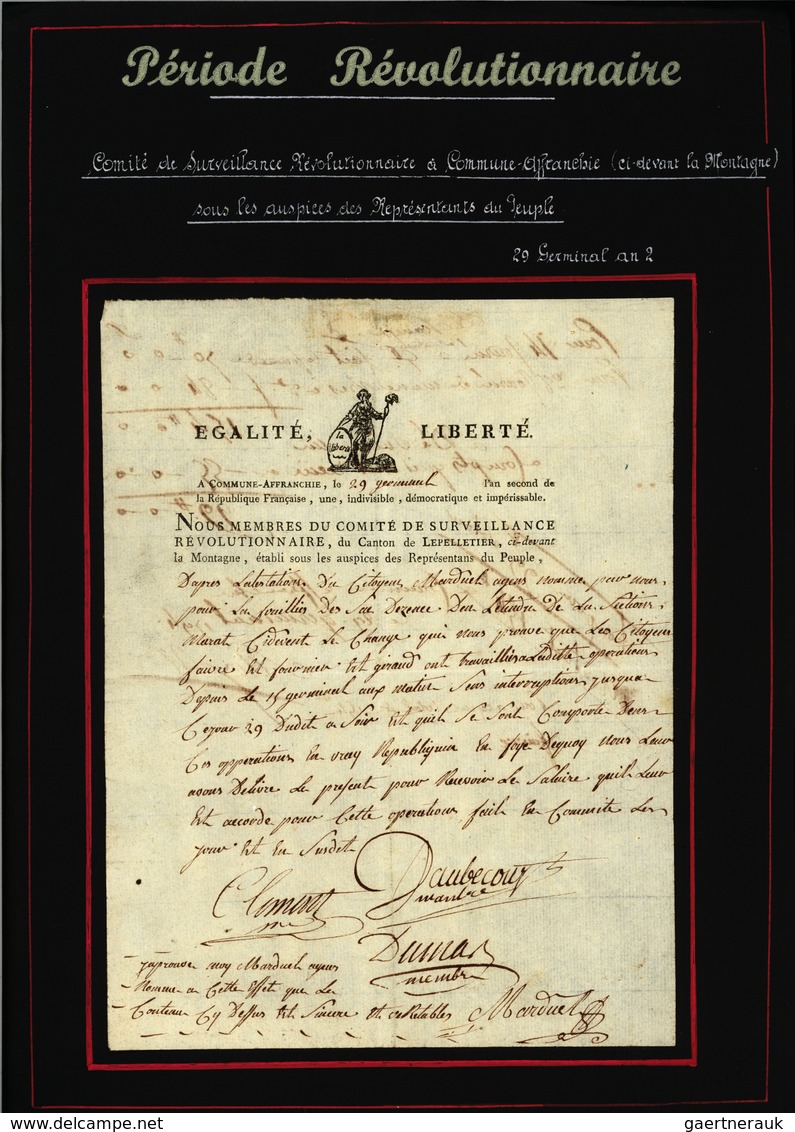 Période Révolutionnaire
Comité de Surveillance Révolutionnaire à Commune-Affranchie (ci-devant la Montagne)
sous les auspices des Représentants du Peuple
29 Germinal an 2
EGALITÉ, LIBERTÉ.
la
liberté
A COMMUNE-AFFRANCHIE, le 29 germinal l'an second de
la République Française, une, indivisible, démocratique et impérissable.
NOUS MEMBRES DU COMITÉ DE SURVEILLANCE
RÉVOLUTIONNAIRE, du Canton de LEPELLETIER, ci-devant
la Montagne, établi sous les auspices des Représentans du Peuple,
Dapres Latestations Du Citoyen Marduel agens nomme par nous
pour La fouillies Des Dezence Den Letandu De La Sections
Marat Cidevent Le Change qui nous prouve que Les Citoyens
faivre Et fournier Et giraud ont travaillies a Laditte operations
Depuis Le 15 germinal aux matin Sens interruptions jusqua
Cejour 29 Dudit a Soir Et quil Se Sont Comporte Dens
Ces opperations En vray Republiquin En foye Dequoy nous Leur
avons Delivre Le present pour Recevoir Le Salaire quil Leur
Est accorde pour Cette operations fait En Committe Les
jour Et En Susdit
Clement Daubecourt
membre
Dumas
membre
japrouve moy Marduel agens
Nomme a Cette Effet que Le
Contenu Cy Dessus Est Sincere et Marduel
gaertnerauk